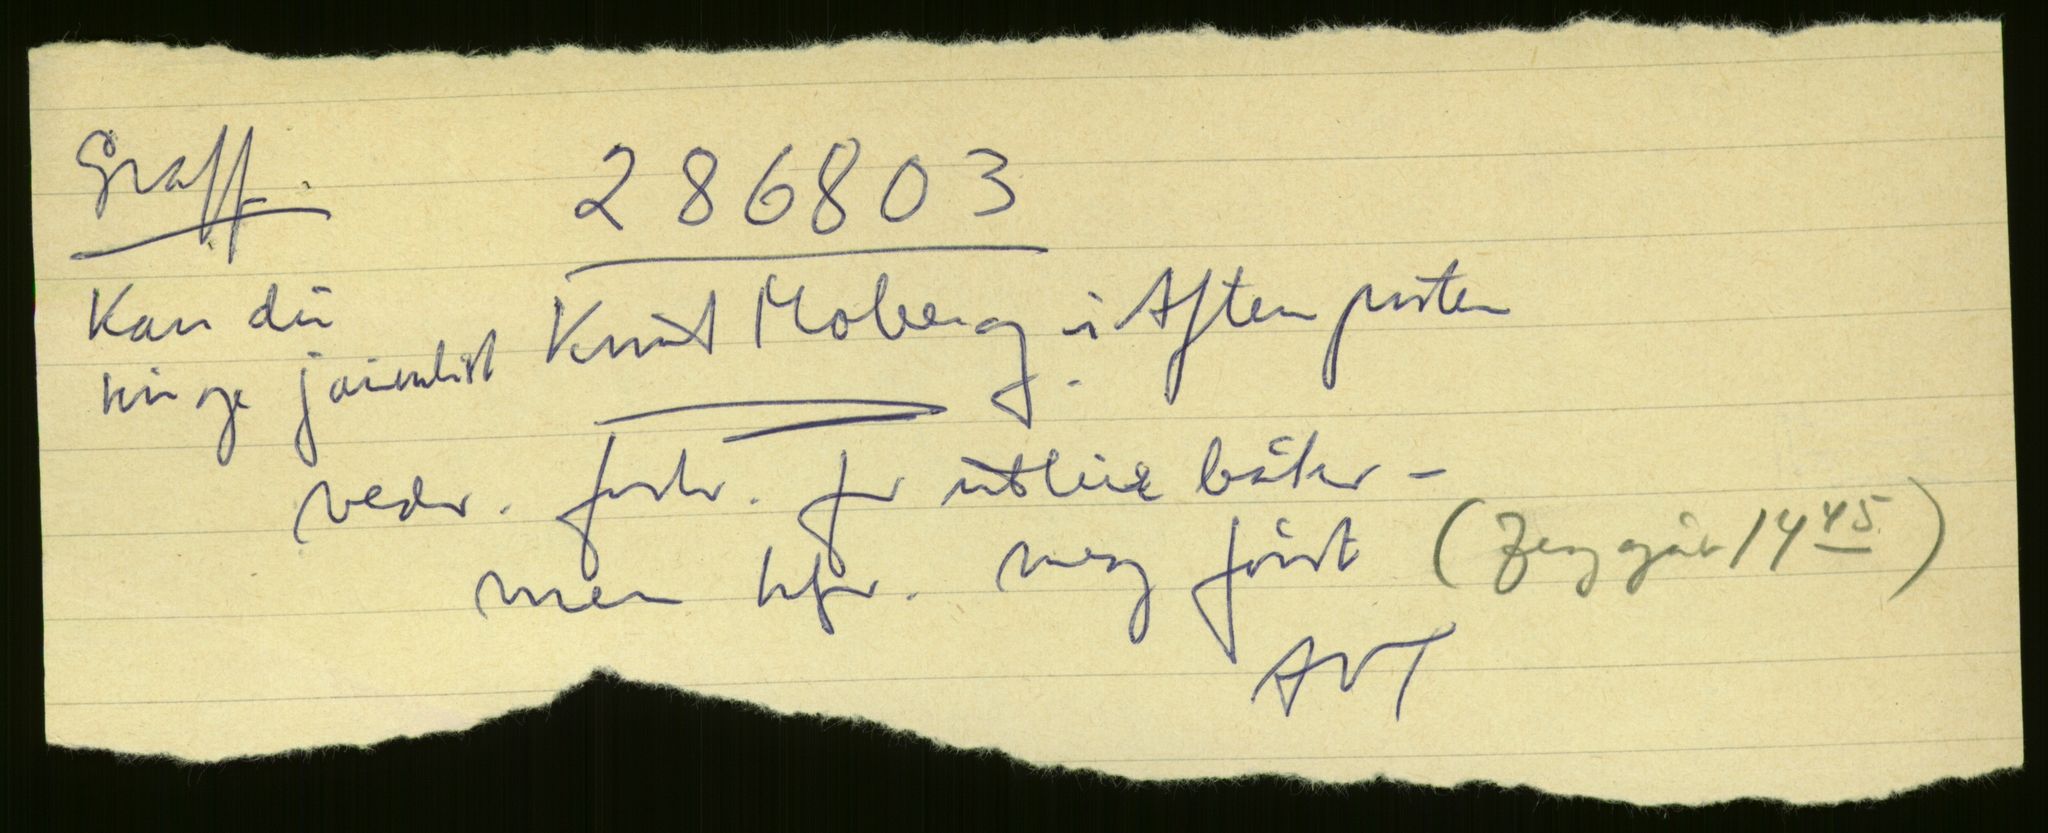 Graff. 286803
Kan du
ringe journalist Knut Moberg i Aftenposten
vedr. forskr. for utleie båter -
men konfr. meg først (Jeg går 14 45)
AVT